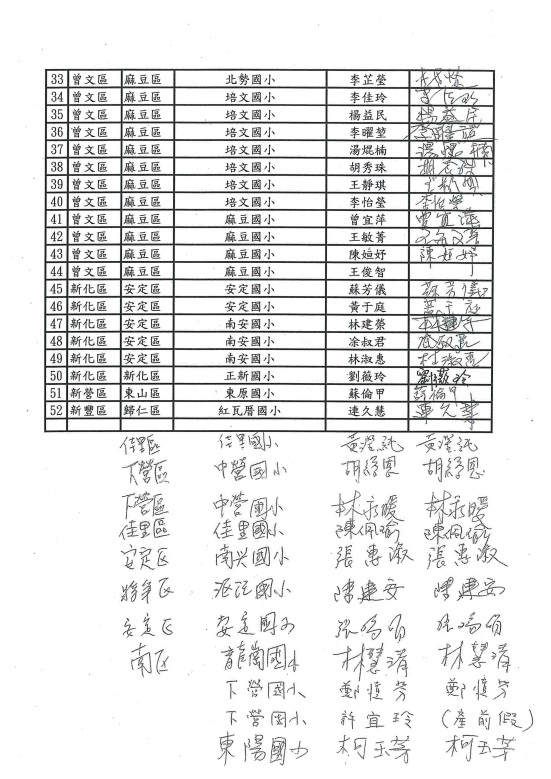 33 曾文區 麻豆區 北勢國小 李芷瑩
34 曾文區 麻豆區 培文國小 李佳玲 李佳玲
35 曾文區 麻豆區 培文國小 楊益民 楊益民
36 曾文區 麻豆區 培文國小 李曜堃
37 曾文區 麻豆區 培文國小 湯焜楠 湯焜楠
38 曾文區 麻豆區 培文國小 胡秀珠 胡秀珠
39 曾文區 麻豆區 培文國小 王靜琪
40 曾文區 麻豆區 培文國小 李怡瑩 李怡瑩
41 曾文區 麻豆區 麻豆國小 曾宜萍 曾宜萍
42 曾文區 麻豆區 麻豆國小 王敏菁 王敏菁
43 曾文區 麻豆區 麻豆國小 陳姮妤 陳姮妤
44 曾文區 麻豆區 麻豆國小 王俊智
45 新化區 安定區 安定國小 蘇芳儀 蘇芳儀
46 新化區 安定區 安定國小 黃于庭 黃于庭
47 新化區 安定區 南安國小 林建榮
48 新化區 安定區 南安國小 凃叔君
49 新化區 安定區 南安國小 林淑惠 林淑惠
50 新化區 新化區 正新國小 劉薇玲 劉薇玲
51 新營區 東山區 東原國小 蘇倫甲 蘇倫甲
52 新豐區 歸仁區 紅瓦厝國小 連久慧 連久慧
佳里區 佳里國小
下營區 中營國小
下營區 中營國小 林永暖 林永暖
佳里區 佳里國小 陳佩瑜 陳佩瑜
安定區 南兴國小 張惠淑 張惠淑
將軍区 國小 陳建安 陳建安
安定区 安定國小
南区 龍崗國小 林慧清 林慧清
下營国小 鄭慎芳 鄭慎芳
下營国小 許宜玲 (產前假)
東陽國小 柯玉芬 柯玉芬